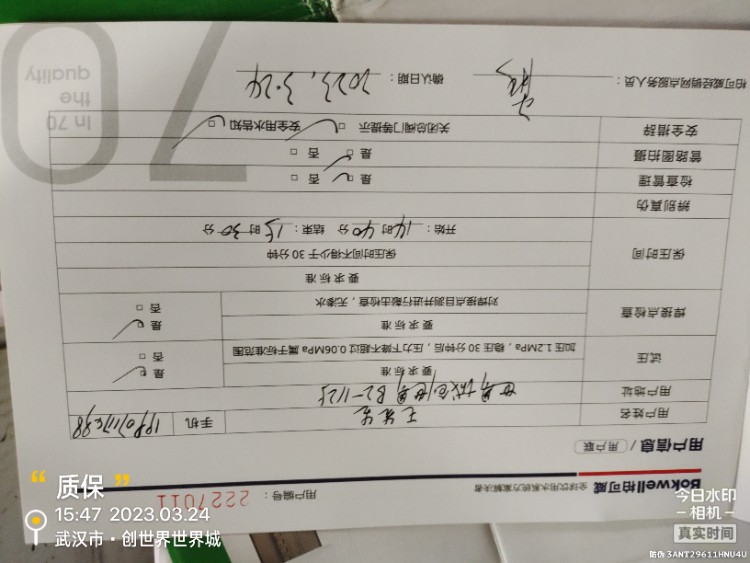 Bokwell柏可威 全球饮用水系统方案解决者
用户编号：2227011
用户信息 / 用户联
用户姓名 王先生 手机
用户地址
试压 要求标准 是
加压1.2MPa，稳压30分钟后，压力下降不超过0.06MPa属于标准范围 否
焊接点检查 要求标准 是
对焊接点目测并进行敲击检查，无渗水 否
保压时间 要求标准
保压时间不得少于30分钟
开始：14时40分 结束：15时30分
辨别真伪
检查管理 是 否
管路图拍摄 是 否
安全措辞 关闭总阀门等提示 安全用水告知
柏可威经销网点服务人员： 确认日期：2023.3.24
In 70
the
quality
70
“质保”
15:47 2023.03.24
武汉市·创世界世界城
今日水印
相机
真实时间
防伪 3ANT29611HNU4U